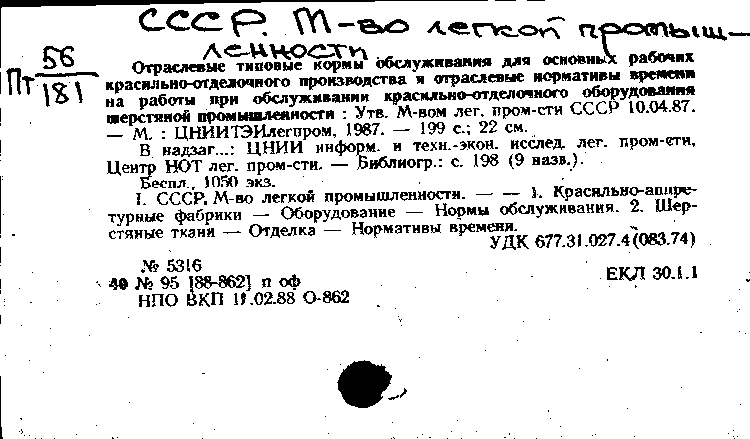 СССР. М-во легкой промыш-
ленности
Пт 56
181
Отраслевые типовые нормы обслуживания для основных рабочих
красильно-отделочного производства и отраслевые нормативы времени
на работы при обслуживании красильно-отделочного оборудования
шерстяной промышленности : Утв. М-вом лег. пром-сти СССР 10.04.87.
— М. : ЦНИИТЭИлегпром, 1987. — 199 с.; 22 см.
В надзаг...: ЦНИИ информ. и техн.-экон. исслед. лег. пром-сти,
Центр НОТ лег. пром-сти. — Библиогр.: с. 198 (9 назв.).
Беспл., 1050 экз.
I. СССР. М-во легкой промышленности. — — 1. Красильно-аппре-
турные фабрики — Оборудование — Нормы обслуживания. 2. Шер-
стяные ткани — Отделка — Нормативы времени.
УДК 677.31.027.4(083.74)
№ 5316
40 № 95 [88-862] п оф
ЕКЛ 30.1.1
НПО ВКП 11.02.88 О-862